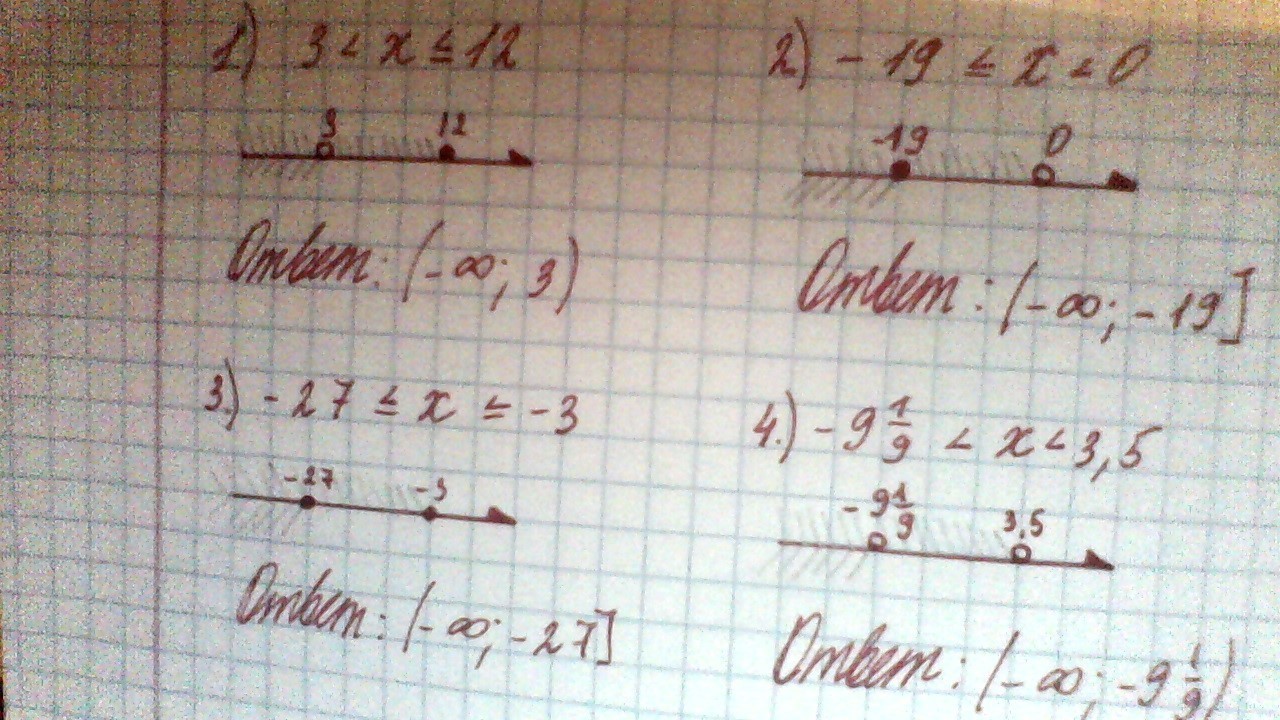 1) 3 < x ≤ 12
3 12
Ответ: (-∞; 3)
2) -19 ≤ x < 0
-19 0
Ответ: (-∞; -19]
3.) -27 ≤ x ≤ -3
-27 -3
Ответ: (-∞; -27]
4.) -9 1/9 < x < 3,5
-9 1/9 3,5
Ответ: (-∞; -9 1/9)